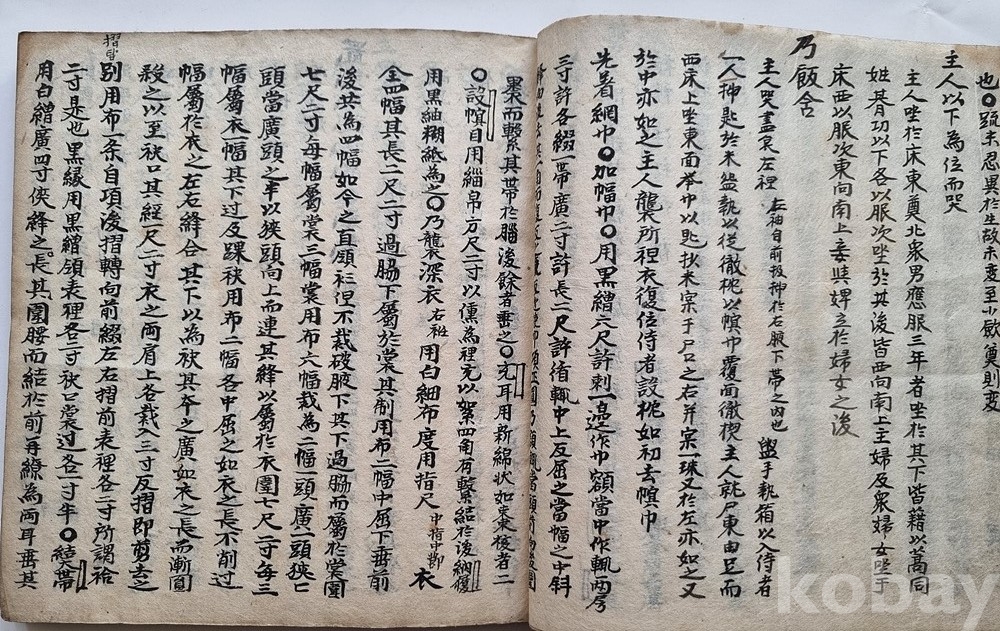 也○疏未忍異於生故未變至小斂奠則变
主人以下為位而哭
主人坐於床東奠北衆男應服三年者坐於其下皆藉以藁同
姓朞功以下各以服次坐於其後皆西向南上主婦及衆婦女坐于
床西以服次東向南上妾婢立於婦女之後
乃飯含
主人哭盡哀左袒 左袖自前扱揷於右腋下帶之内也 盥手執箱以入侍者
一人揷匙於米盌執以從徹枕以幎巾覆面徹楔主人就尸東由足而
西床上坐東面举巾以匙抄米宲于尸口之右并宲一珠又於左亦如之又
於中亦如之主人襲所袒衣復位侍者設枕如初去幎巾
先着網巾○加幅巾○用黑繒六尺許刺一邉作巾額當中作㡇两旁
三寸許各綴一帶廣二寸許長二尺許循㡇中上反屈之當幅之中斜
裹而繫其帶於腦後餘者垂之○充耳用新綿状如枣核者二
○設幎目用緇帛方尺二寸以纁為裡充以絮四角有繫結於後納履
用黑紬糊紙為之○乃襲深衣 右衽 用白細布度用指尺 中指中節 衣
全四幅其長二尺二寸過脇下屬於裳其制用布二幅中屈下垂前
後共為四幅如今之直領衫但不裁破腋下其下過脇而屬於裳圍
七尺二寸每幅屬裳三幅裳用布六幅裁為二幅一頭廣一頭狹七
頭當廣頭之半以狹頭向上而連其縫以屬於衣圍七尺二寸每三
幅屬衣一幅其下过及踝袂用布二幅各中屈之如衣之長不削过
幅屬於衣之左右縫合其下以為袂其夲之廣如衣之長而漸圓
殺之以至袂口其經一尺二寸衣之两肩上各裁入三寸反摺即剪去之
摺
別用布一条自項後摺轉向前綴左右摺前表裡各二寸所謂袷
二寸是也黑縁用黑繒領表裡各二寸袂口裳过各一寸半○緣帶
用白繒廣四寸俠縫之長其圍腰而結於前再繚為两耳垂其
kobay